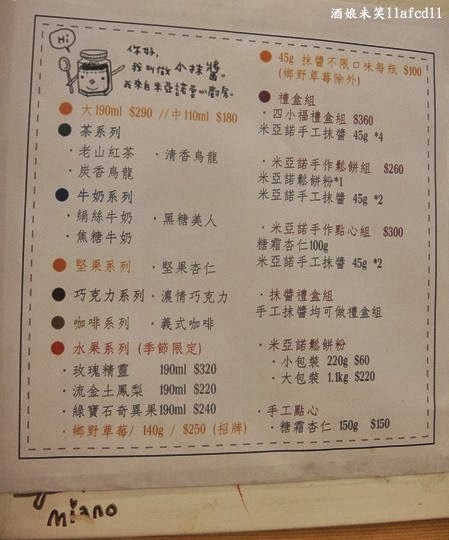 酒娘未笑11afcd11
Hi
你好,
我叫做 小抹醬。
我來自米亞諾安心廚房。
大190ml $290 //中110ml $180
茶系列
·老山紅茶 ·清香烏龍
·炭香烏龍
牛奶系列
·絹絲牛奶 ·黑糖美人
·焦糖牛奶
堅果系列 ·堅果杏仁
巧克力系列·濃情巧克力
咖啡系列 ·義式咖啡
水果系列 (季節限定)
·玫瑰精靈 190ml $320
·流金土鳳梨 190ml $220
·綠寶石奇異果190ml $240
·鄉野草莓/ 140g / $250 (招牌)
45g 抹醬不限口味每瓶 $100
(鄉野草莓除外)
禮盒組
·四小福禮盒組 $360
米亞諾手工抹醬 45g *4
·米亞諾手作鬆餅組 $260
米亞諾鬆餅粉*1
米亞諾手工抹醬 45g *2
·米亞諾手作點心組 $300
糖霜杏仁100g
米亞諾手工抹醬 45g *2
·抹醬禮盒組
手工抹醬均可做禮盒組
·米亞諾鬆餅粉
·小包裝 220g $60
·大包裝 1.1kg $220
·手工點心
·糖霜杏仁 150g $150
miano